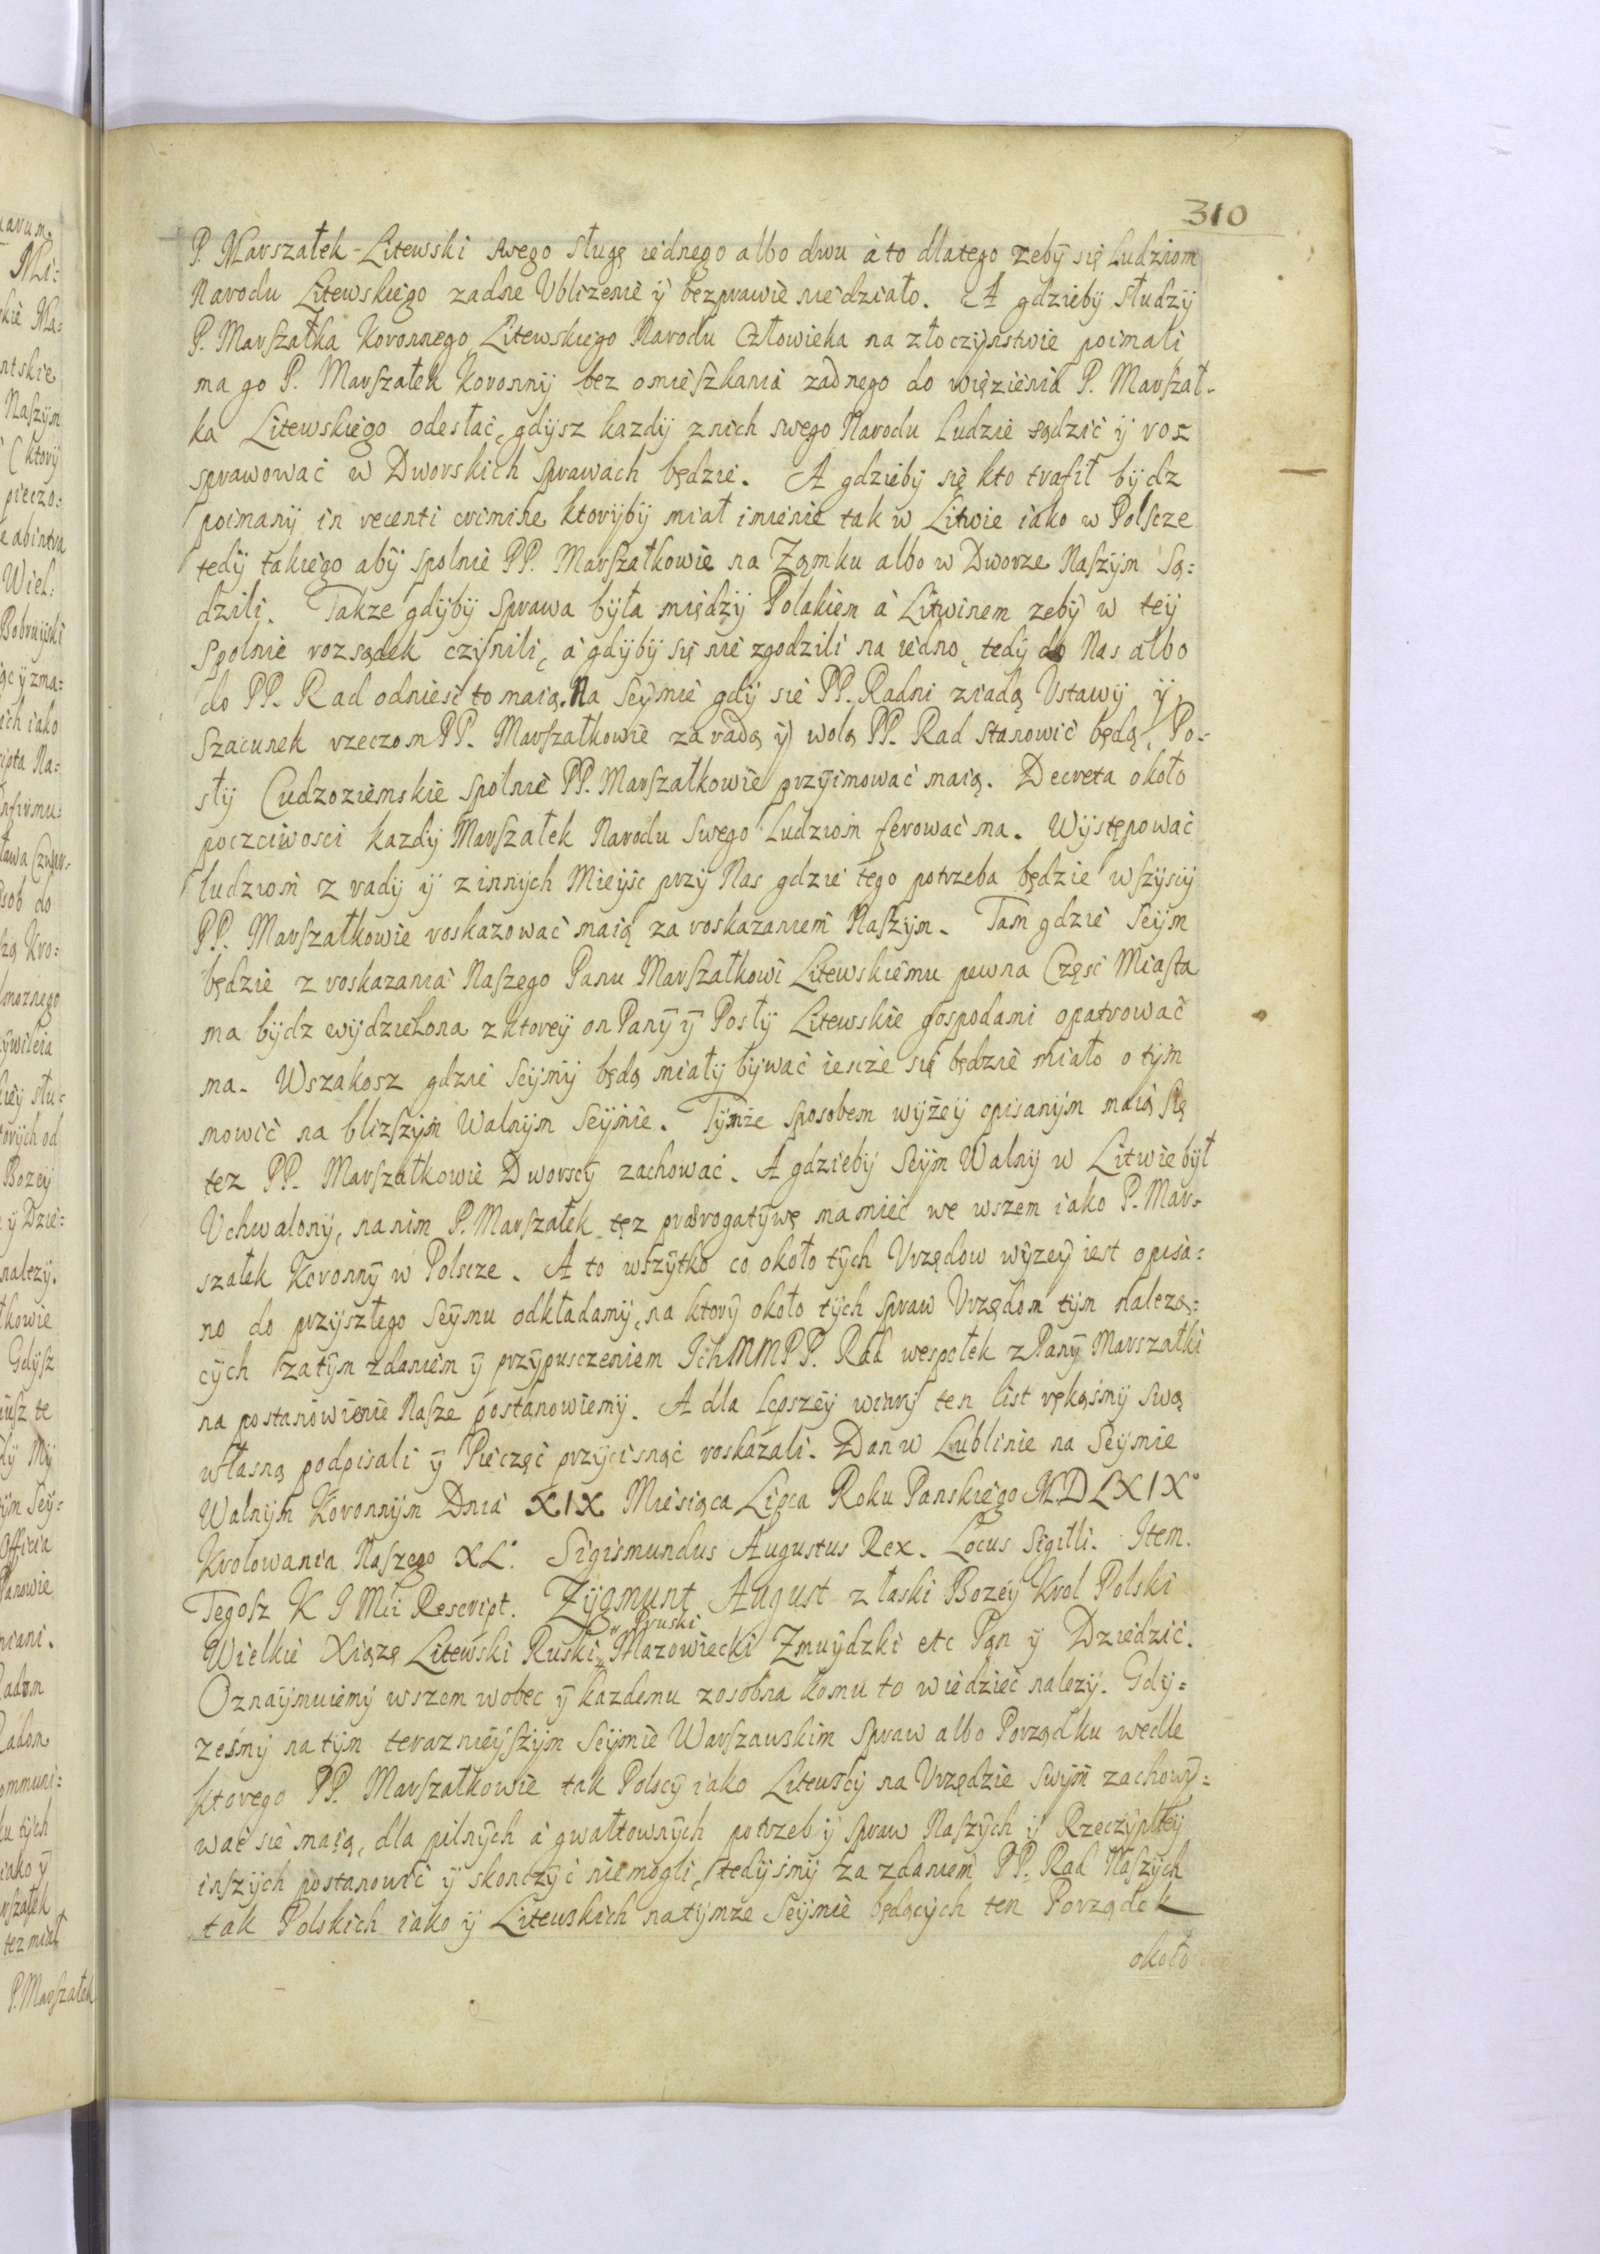 310
P. Marszałek-Litewski swego sługę iednego albo dwu à to dlatego zeby się Ludziom
Narodu Litewskiego zadne Ubliżenie ÿ bezprawie niedziało. A gdzieby słudzy
P. Marszałka Koronnego Litewskiego Narodu Człowieka na złoczynstwie poimali
ma go P. Marszałek Koronny bez omieszkania zadnego do więzienia P. Marszał-
ka Litewskiego odesłać, gdysz kazdy z nich swego Narodu Ludzie sądzić ÿ roz
sprawować w Dworskich sprawach będzie. A gdzieby się kto trafił bydz
poimany in recenti crimine ktoryby miał imienie tak w Litwie iako w Polszcze
tedy takiego aby spolnie PP. Marszałkowie na Zamku albo w Dworze Naszym Są=
dzili. Takze gdyby sprawa była między Polakiem à Litwinem zeby w tey
spolnie rozsądek czynili, à gdyby się nie zgodzili na iedno, tedy do Nas albo
do PP. Rad odnieść to maią. Na Seymie gdy sie PP. Radni ziadą Ustawy ÿ
szacunek rzeczom PP. Marszałkowie za radą ÿ wolą PP. Rad stanowić będą, Po-
sły Cudzoziemskie spolnie PP. Marszałkowie przyimować maią. Decreta około
poczciwosci kazdy Marszałek Narodu Swego Ludziom ferować ma. Występować
ludziom z rady ÿ z innych Mieysc przy Nas gdzie tego potrzeba będzie wszyscy
PP. Marszałkowie roskazować maią za roskazaniem Naszym. Tam gdzie Seym
będzie z roskazania Naszego Panu Marszałkowi Litewskiemu pewna Część Miasta
ma bydz wydzielona z ktorey on Pany ÿ Posły Litewskie gospodami opatrować
ma. Wszakosz gdzie Seymy będą miały bywać iescze się będzie miało o tym
mowić na blizszym Walnym Seymie. Tymże sposobem wyżey opisanym maią się
tez PP. Marszałkowie Dworscy zachować. A gdzieby Seym Walny w Litwie był
Uchwalony, na nim P. Marszałek tez prærogatywę ma mieć we wszem iako P. Mar-
szałek Koronny w Polscze. A to wszytko co około tych Urzędow wyzey iest opisa=
no do przyszłego Seymu odkładamy, na ktory około tych spraw Urzędom tym nalezą=
cych za tym zdaniem ÿ przypusczeniem Ich MM PP. Rad wespołek z Pany Marszałki
na postanowienie Nasze postanowiemy. A dla lepszey wiary ten list rękąśmy swą
własną podpisali ÿ Pieczęć przycisnąć roskazali. Dan w Lublinie na Seymie
Walnym Koronnym Dnia XIX Miesiąca Lipca Roku Panskiego M.DLXIX°
Krolowania Naszego XL°. Sigismundus Augustus Rex. Locus Sigilli. Item.
Tegosz K J Mci Rescript. Zygmunt August z łaski Bozey Krol Polski
Wielkie Xiązę Litewski Ruski, Pruski Mazowiecki Zmuydzki etc Pan ÿ Dziedzic.
Oznaymuiemy wszem wobec ÿ kazdemu zosobna komu to wiedzieć nalezy. Gdy=
ześmy na tym teraznieyszym Seymie Warszawskim spraw albo Porządku wedle
ktorego PP. Marszałkowie tak Polscy iako Litewscy na Urzędzie swym zachowy=
wać sie maią, dla pilnych à gwałtownych potrzeb ÿ spraw Naszych ÿ Rzeczyplitey
inszych postanowić ÿ skonczyć niemogli, tedyśmy za zdaniem PP. Rad Naszych
tak Polskich iako ÿ Litewskich na tymze Seymie będących ten Porządek
około